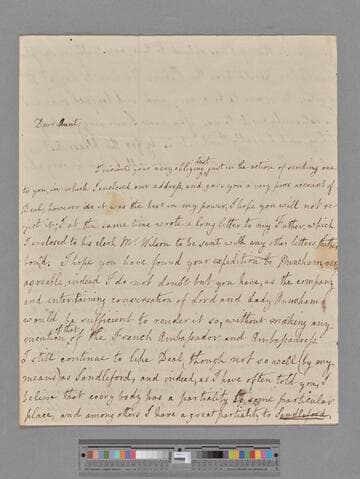 Dear Aunt,
I received your very obliging last just in the action of sending one
to you in which I enclosed our address, and gave you a very poor account of
Deal, however as it was the best in my power, I hope you will not re-
ject it; I at the same time wrote a long letter to my Father, which
I enclosed to his clerk Mr. Wilson to be sent with any other letters
bound. I hope you have found your expedition to Nuneham very
agreable, indeed I do not doubt but you have, as the company
and entertaining conversation of Lord and Lady Nuneham
would be sufficient to render it so, without making any
mention of that of the French Ambassador and Ambassadress.
I still continue to like Deal, though not so well (by any
means) as Sandleford, and indeed, as I have often told you, I
believe that every body has a partiality to some particular
place, and among others I have a great partiality to Sandleford.